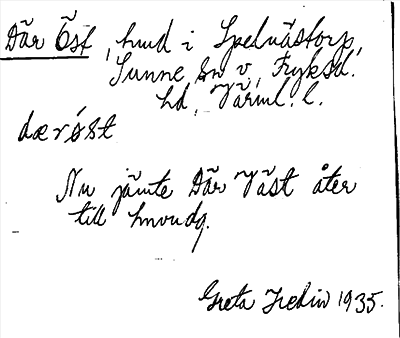 Där Öst, hmd i Spelnästorp,
Sunne sn v., Fryksd.
hd, Värml. l.
dærø̀st
Nu jämte Där Väst åter
till hmvudg.
Greta Hedin 1935.